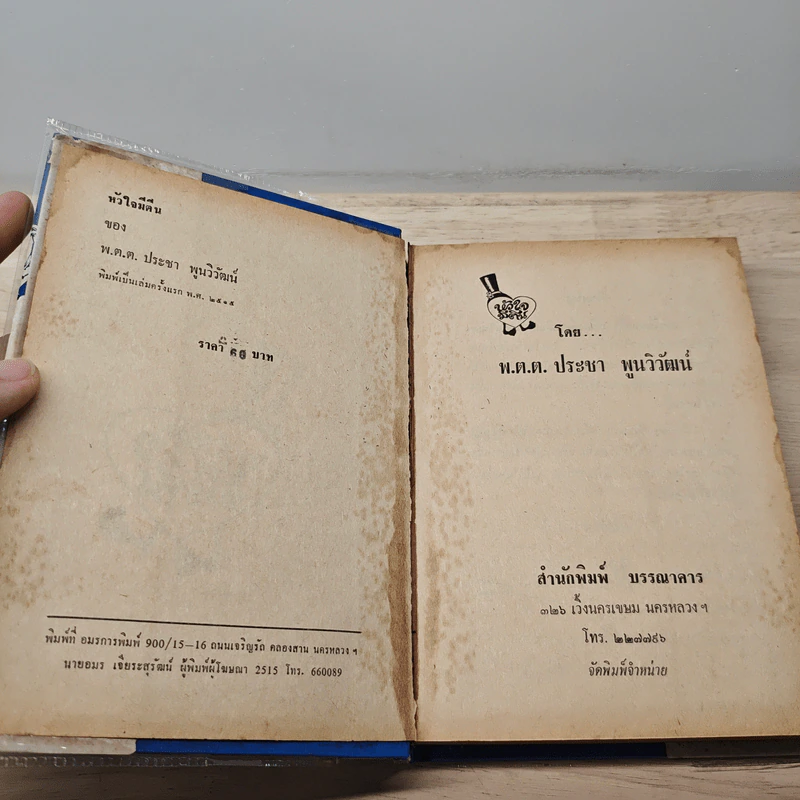 หัวใจมีตีน
ของ
พ.ต.ต. ประชา พูนวิวัฒน์
พิมพ์เป็นเล่มครั้งแรก พ.ศ. ๒๕๑๕
ราคา บาท
พิมพ์ที่ อมรการพิมพ์ 900/15–16 ถนนเจริญรัถ คลองสาน นครหลวง ฯ
นายอมร เจียระสุรัฒน์ ผู้พิมพ์ผู้โฆษณา 2515 โทร. 660089
หัวใจ
มีตีน
โดย...
พ.ต.ต. ประชา พูนวิวัฒน์
สำนักพิมพ์ บรรณาคาร
๓๒๖ เวิ้งนครเขษม นครหลวง ฯ
โทร. ๒๒๗๗๙๖
จัดพิมพ์จำหน่าย